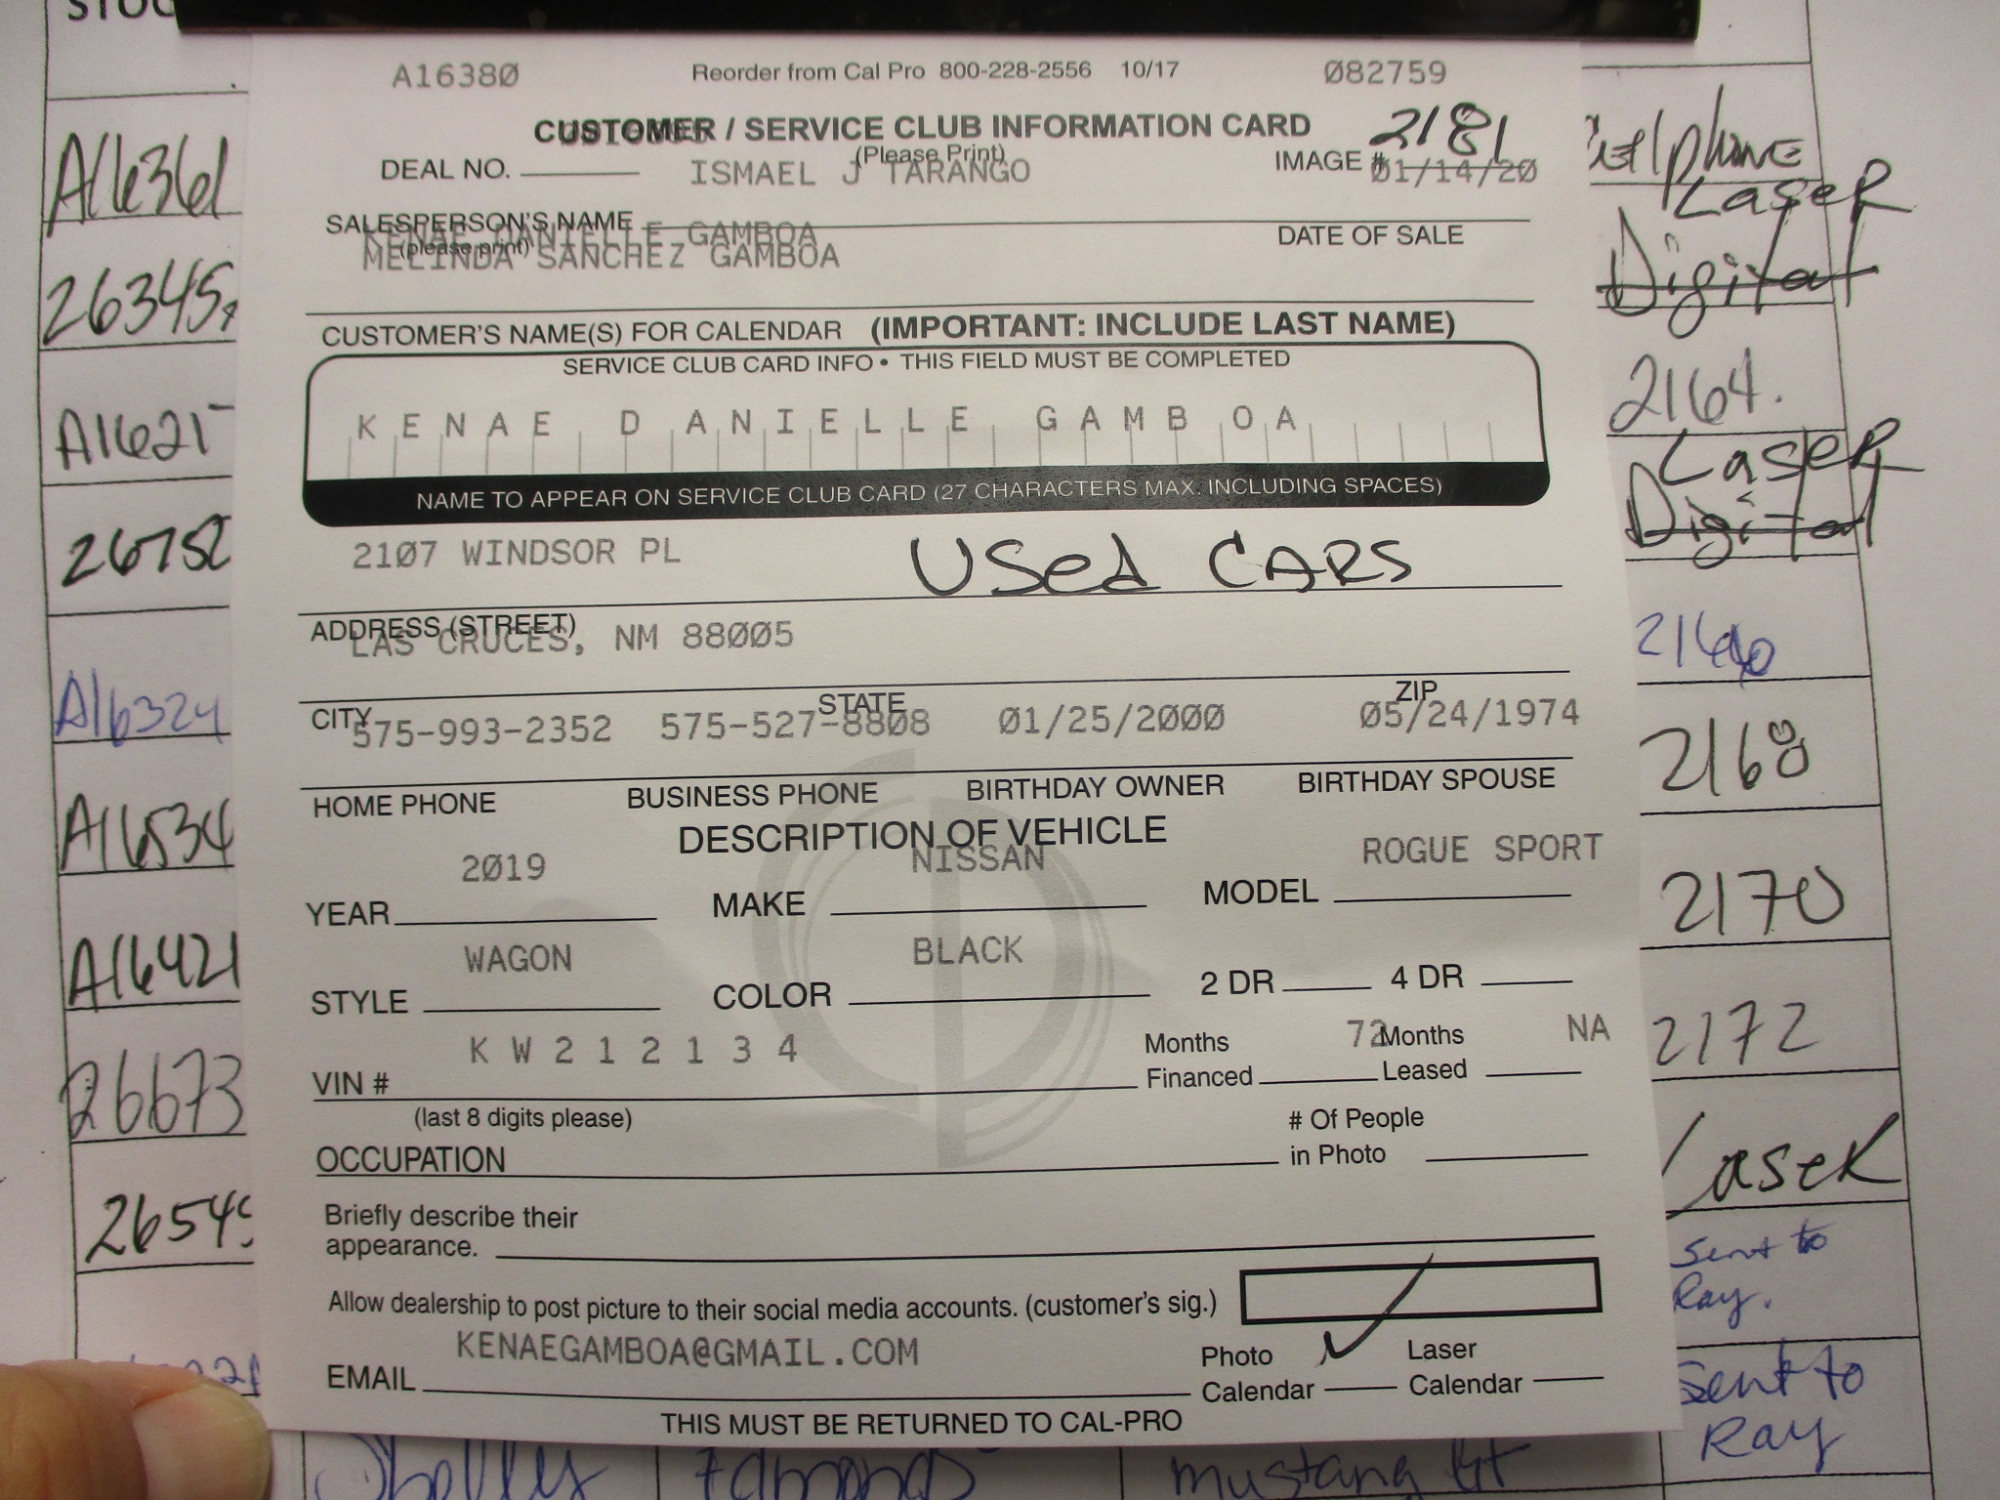 A16380 Reorder from Cal Pro 800-228-2556 10/17 082759
CUSTOMER / SERVICE CLUB INFORMATION CARD 2181
(Please Print)
DEAL NO. ISMAEL J TARANGO IMAGE # 01/14/20
SALESPERSON'S NAME DATE OF SALE
(please print)
KENAE DANIELLE GAMBOA
MELINDA SANCHEZ GAMBOA
CUSTOMER'S NAME(S) FOR CALENDAR (IMPORTANT: INCLUDE LAST NAME)
SERVICE CLUB CARD INFO • THIS FIELD MUST BE COMPLETED
KENAE DANIELLE GAMBOA
NAME TO APPEAR ON SERVICE CLUB CARD (27 CHARACTERS MAX. INCLUDING SPACES)
2107 WINDSOR PL USed CARS
ADDRESS (STREET)
LAS CRUCES, NM 88005
CITY STATE ZIP
575-993-2352 575-527-8808 01/25/2000 05/24/1974
HOME PHONE BUSINESS PHONE BIRTHDAY OWNER BIRTHDAY SPOUSE
DESCRIPTION OF VEHICLE
2019 NISSAN ROGUE SPORT
YEAR MAKE MODEL
WAGON BLACK
STYLE COLOR 2 DR 4 DR
KW212134 72 NA
VIN # Months Financed Months Leased
(last 8 digits please) # Of People
OCCUPATION in Photo
Briefly describe their
appearance.
Allow dealership to post picture to their social media accounts. (customer's sig.)
KENAEGAMBOA@GMAIL.COM
EMAIL Photo Calendar ✓ Laser Calendar
THIS MUST BE RETURNED TO CAL-PRO
A16361
26345
A1621
26752
A16324
A16534
A16421
26673
2654
phone
Laser
Digital
2164.
Laser
Digital
2166
2168
2170
2172
Laser
Sent to
Ray.
Sent to
Ray
Shelly Edmonds mustang Gt